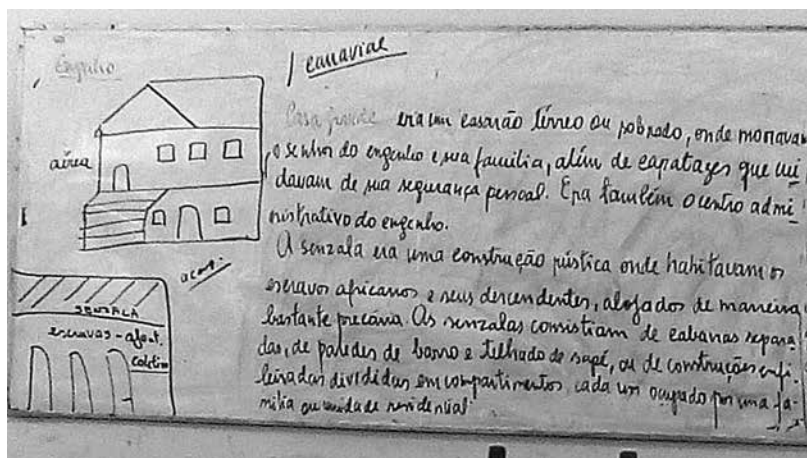 Engenho
canavial
aérea
Casa grande era um casarão térreo ou sobrado, onde moravam
o senhor do engenho e sua família, além de capatazes que cui
davam de sua segurança pessoal. Era também o centro admi
nistrativo do engenho.
A senzala era uma construção rústica onde habitavam os
escravos africanos e seus descendentes, alojados de maneira
bastante precária. As senzalas consistiam de cabanas separa
das, de paredes de barro e telhado de sapé, ou de construções enfi-
leiradas divididas em compartimentos, cada um ocupado por uma fa-
mília ou unidade residencial
SENZALA
escravos -